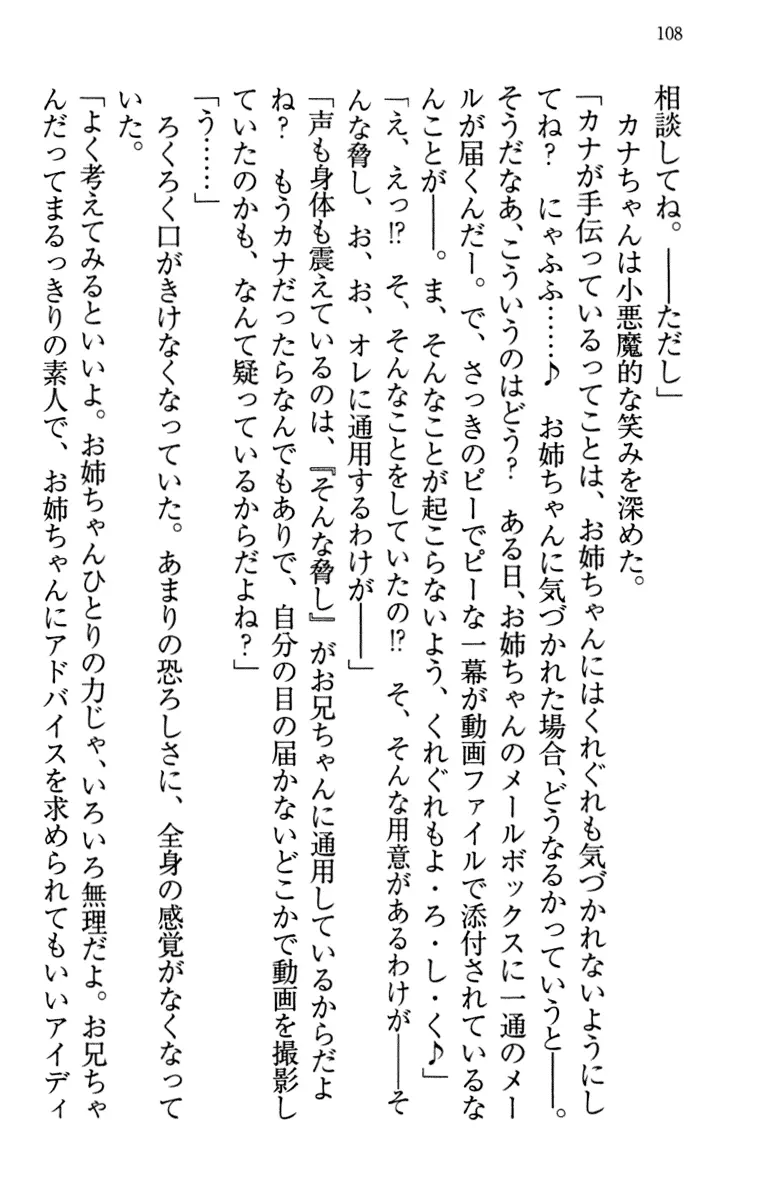 108
相談してね。――ただし」
　カナちゃんは小悪魔的な笑みを深めた。
「カナが手伝っているってことは、お姉ちゃんにはくれぐれも気づかれないようにし
てね？　にゃふふ……♪　お姉ちゃんに気づかれた場合、どうなるかっていうと――。
そうだなあ、こういうのはどう？　ある日、お姉ちゃんのメールボックスに一通のメー
ルが届くんだー。で、さっきのピーでピーな一幕が動画ファイルで添付されているな
んことが――。ま、そんなことが起こらないよう、くれぐれもよ・ろ・し・く♪」
「え、えっ!?　そ、そんなことをしていたの!?　そ、そんな用意があるわけが――そ
んな脅し、お、お、オレに通用するわけが――」
「声も身体も震えているのは、『そんな脅し』がお兄ちゃんに通用しているからだよ
ね？　もうカナだったらなんでもありで、自分の目の届かないどこかで動画を撮影し
ていたのかも、なんて疑っているからだよね？」
「う……」
　ろくろく口がきけなくなっていた。あまりの恐ろしさに、全身の感覚がなくなって
いた。
「よく考えてみるといいよ。お姉ちゃんひとりの力じゃ、いろいろ無理だよ。お兄ちゃ
んだってまるっきりの素人で、お姉ちゃんにアドバイスを求められてもいいアイディ